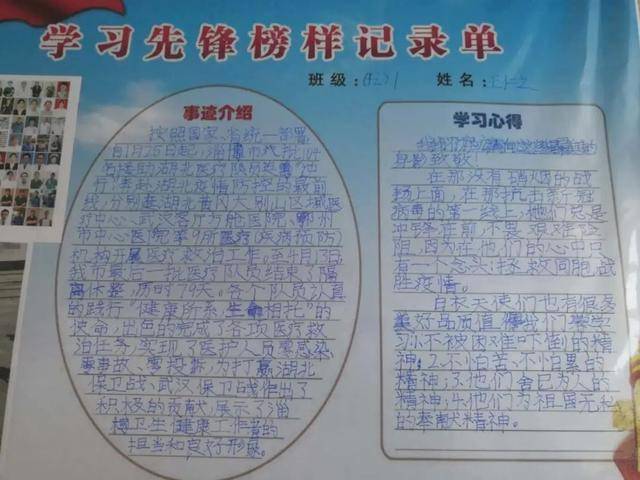 学习先锋榜样记录单
班级：
姓名：
事迹介绍
按照国家、省统一部署
自1月25日起，淄博市
名援助湖北医疗队员
奔赴湖北疫情防控的最前
线，分别在湖北黄冈大别山区域医
疗中心、武汉客厅方舱医院、鄂州
市中心医院等9所医疗（疾病预防）
机构开展医疗救治工作。至4月13日
我市最后一批医疗队员结束了隔
离休整，历时79天。各个队员认真
的践行“健康所系，生命相托”的
使命，出色的完成了各项医疗救
治任务，实现了医护人员零感染、
零事故、零投诉，为打赢湖北
保卫战、武汉保卫战作出了
积极的贡献，展示了淄
博卫生健康工作者的
担当和良好形象。
学习心得
身影致敬！
在那没有硝烟的战
场上面，在那抗击新冠
病毒的第一线上，他们总是
冲锋在前，不畏艰难险
阻，因为在他们的心中只
有一个念头：拯救同胞，战
胜疫情。
白衣天使们也有很多
美好品质值得我们学
习：1.不被困难吓倒的精
神；2.不怕苦，不怕累的
精神；3.他们舍己为人的
精神；4.他们为祖国无私
的奉献精神。